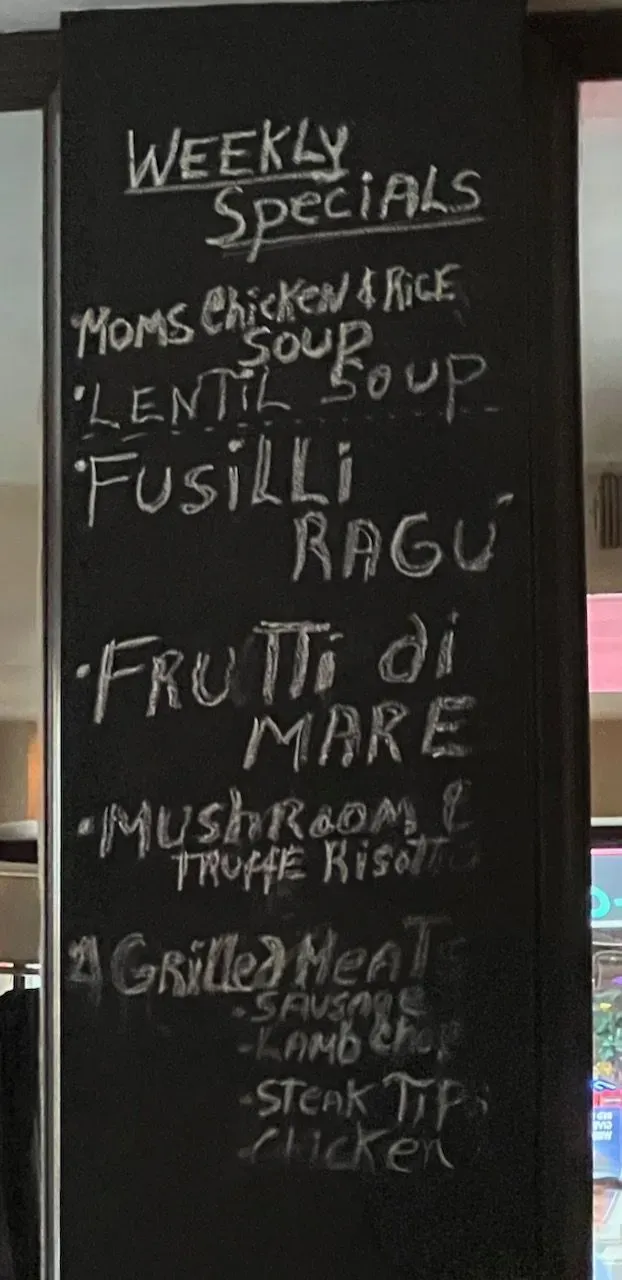 WEEKLY
SpeciALS
·MOMS ChicKEN & RiCE
SOUP
·LENTiL SOUP
·FUSiLLi
RAGÚ
·FRUTTi di
MARE
·MUShROOM &
TRUFFE RisOTTO
GRilled MeAT
-SAUSAgE
-LAMb Chop
-STEAK Tips
Chicken